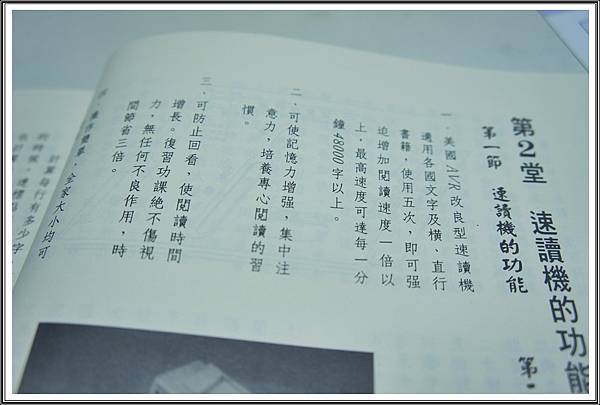 第2堂 速讀機的功能
第一節 速讀機的功能
一、美國AVR改良型速讀機
適用各國文字及橫、直行
書籍，使用五次，即可強
迫增加閱讀速度一倍以
上，最高速度可達每一分
鐘48000字以上。
二、可使記憶力增强，集中注
意力，培養專心閱讀的習
慣。
三、可防止回看，使閱讀時間
增長。復習功課絕不傷視
力，無任何不良作用，時
間節省三倍。
四、全家大小均可
計算每行有多少字
的時候，
第